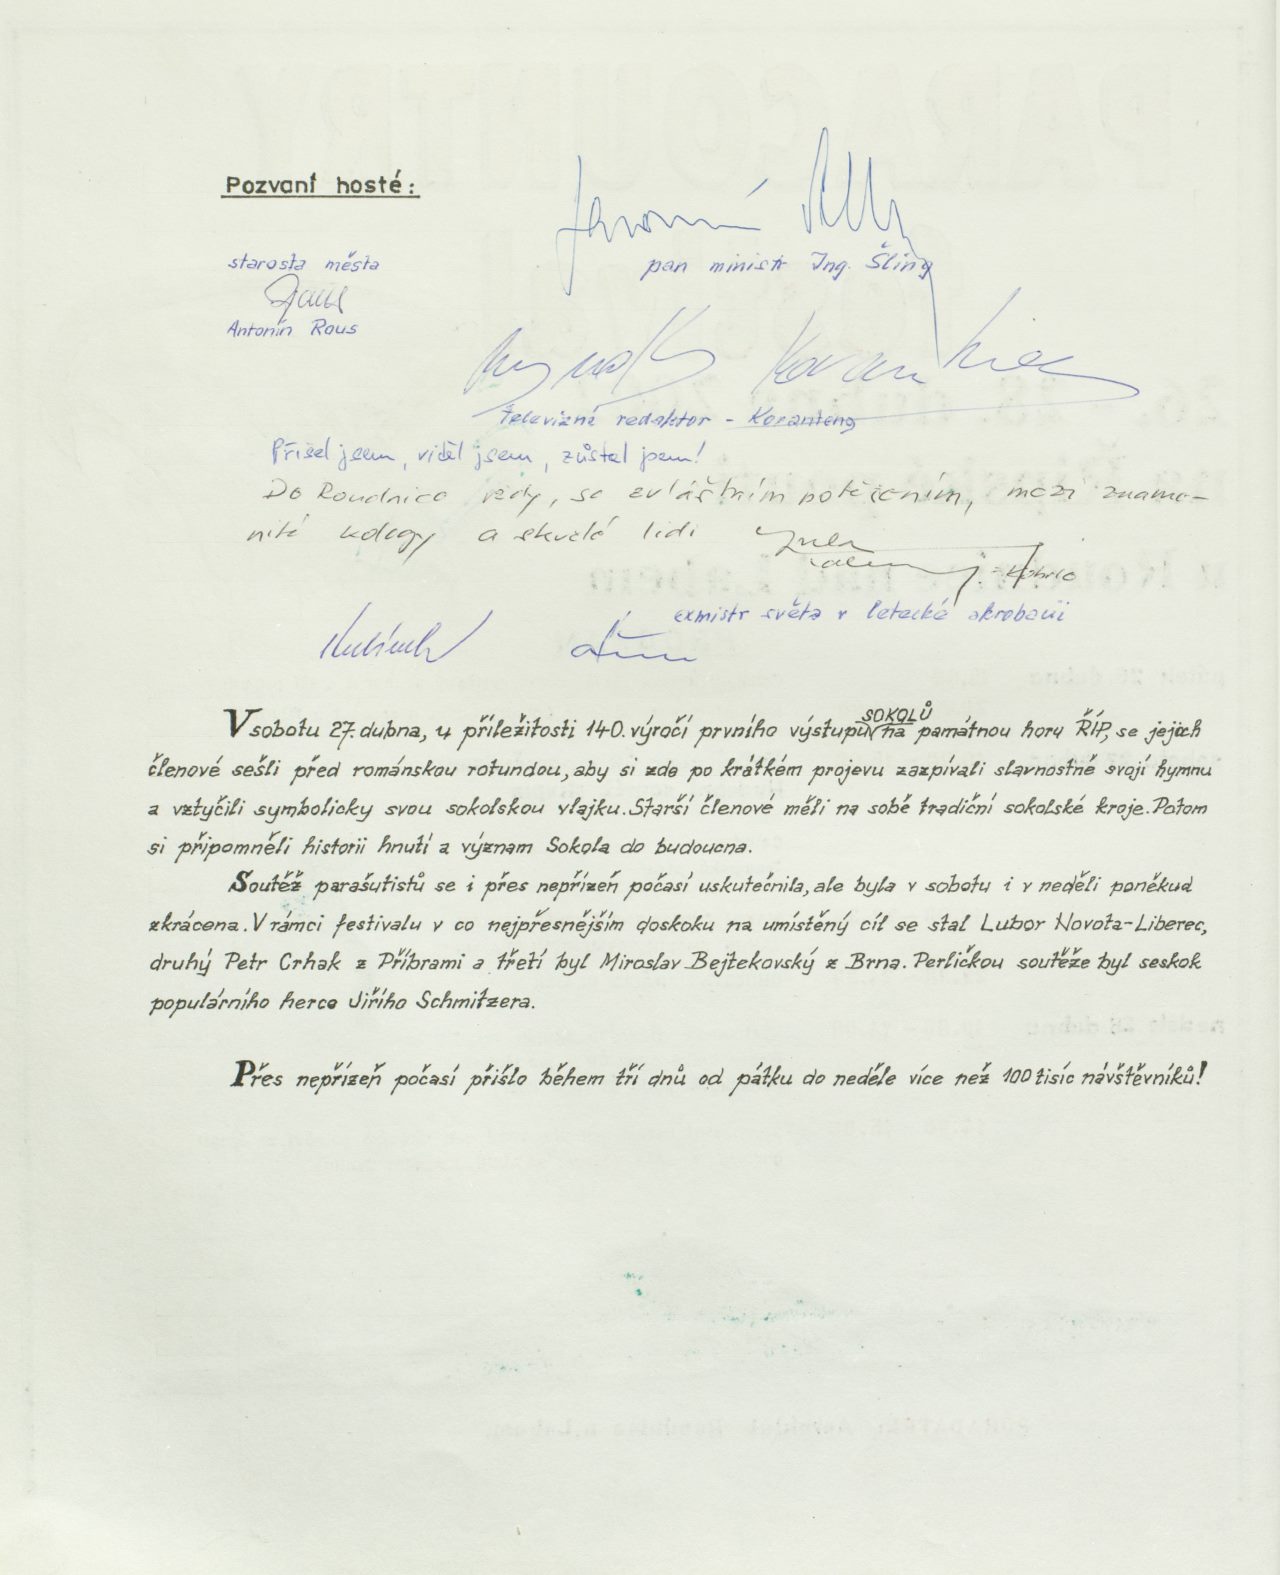 Pozvaní hosté:
starosta města
Antonín Rous
pan ministr Ing. Šling
Televizné redaktor - Koranteng
Přišel jsem, viděl jsem, zůstal jsem!
Do Roudnice vždy, se zvláštním potěšením, mezi znamenité kolegy a skvělé lidi
exmistr světa v letecké akrobacii
V sobotu 27. dubna, u příležitosti 140. výročí prvního výstupu SOKOLŮ na památnou horu ŘÍP, se jejich
členové sešli před románskou rotundou, aby si zde po krátkém projevu zazpívali slavnostně svojí hymnu
a vztyčili symbolicky svou sokolskou vlajku. Starší členové měli na sobě tradiční sokolské kroje. Potom
si připomněli historii hnutí a význam Sokola do budoucna.
Soutěž parašutistů se i přes nepřízeň počasí uskutečnila, ale byla v sobotu i v neděli poněkud
zkrácena. V rámci festivalu v co nejpřesnějším doskoku na umístěný cíl se stal Lubor Novota-Liberec,
druhý Petr Crhak z Příbrami a třetí byl Miroslav Bejtekovský z Brna. Perličkou soutěže byl seskok
populárního herce Jiřího Schmitzera.
Přes nepřízeň počasí přišlo během tří dnů od pátku do neděle více než 100 tisíc návštěvníků!